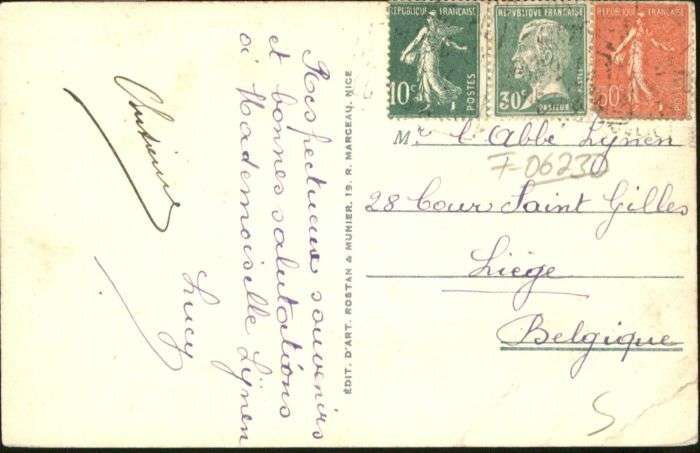 REPUBLIQUE FRANÇAISE
10c
POSTES
REPVBLIQVE FRANÇAISE
30c
PASTEUR
REPUBLIQUE FRANÇAISE
50c
Mr l'Abbé Lÿnen
F-06230
28 Cour Saint Gilles
Liège
Belgique
ÉDIT. D'ART. ROSTAN & MUNIER. 19. R. MARCEAU. NICE
Respectueux souvenirs
et bonnes salutations
à Mademoiselle Lÿnen
Lucy